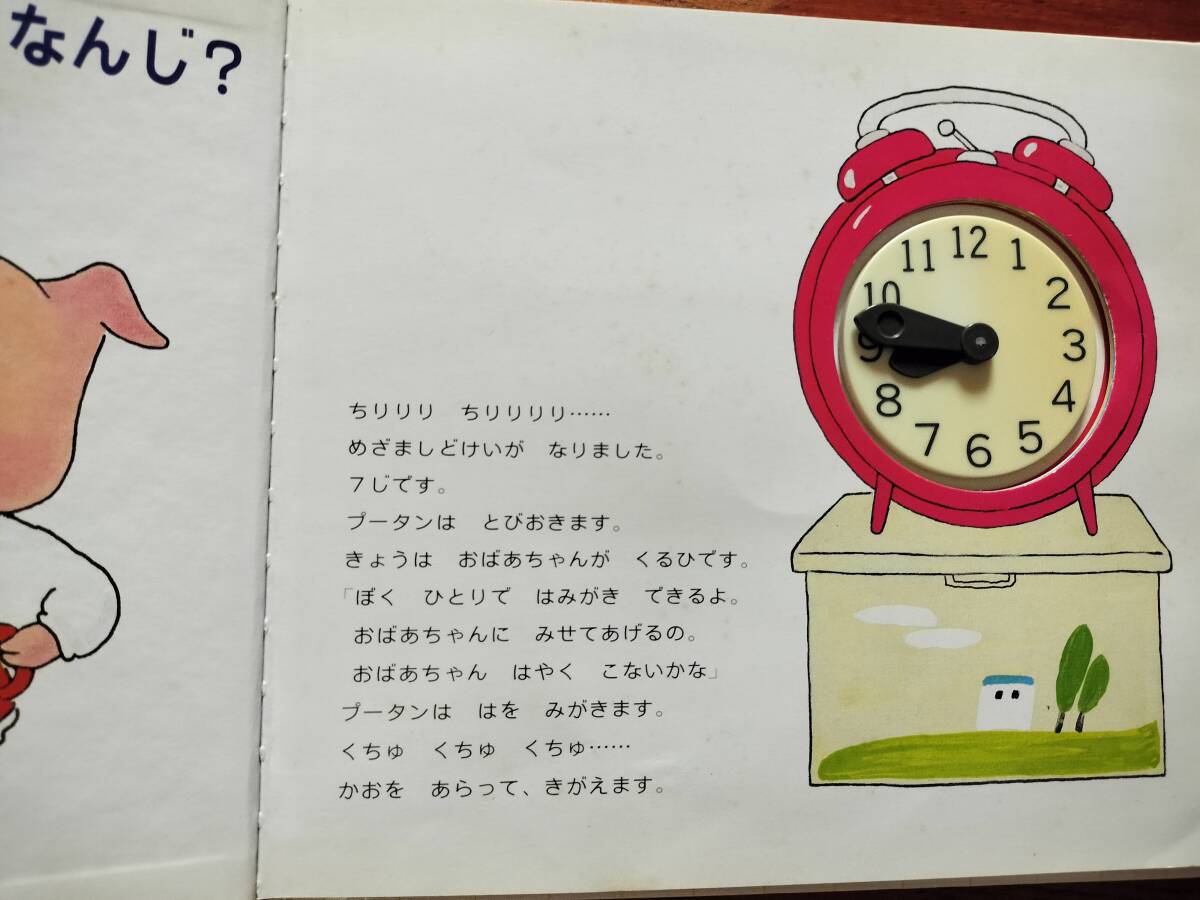 なんじ?
ちりりり　ちりりりり……
めざましどけいが　なりました。
7じです。
プータンは　とびおきます。
きょうは　おばあちゃんが　くるひです。
「ぼく　ひとりで　はみがき　できるよ。
おばあちゃんに　みせてあげるの。
おばあちゃん　はやく　こないかな」
プータンは　はを　みがきます。
くちゅ　くちゅ　くちゅ……
かおを　あらって、きがえます。
12
1
2
3
4
5
6
7
8
9
10
11